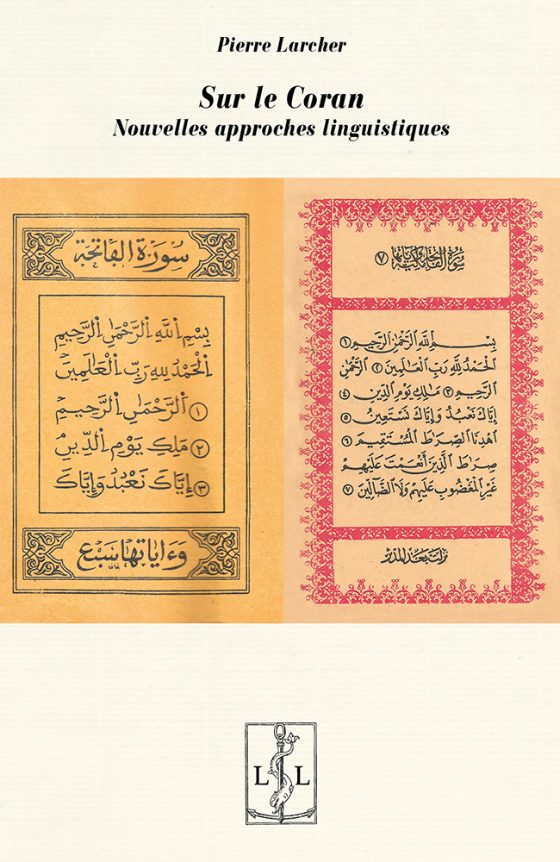 Pierre Larcher
Sur le Coran
Nouvelles approches linguistiques
سورة الفاتحة
بِسْمِ اللَّهِ الرَّحْمَٰنِ الرَّحِيمِ
الْحَمْدُ لِلَّهِ رَبِّ الْعَٰلَمِينَ
١ الرَّحْمَٰنِ الرَّحِيمِ
٢ مَلِكِ يَوْمِ الدِّينِ
٣ إِيَّاكَ نَعْبُدُ وَإِيَّاكَ
وَءَايَاتُهَا سَبْعٌ
سورة الفاتحة ٧
بِسْمِ اللَّهِ الرَّحْمَٰنِ الرَّحِيمِ ١
الْحَمْدُ لِلَّهِ رَبِّ الْعَٰلَمِينَ ٢ الرَّحْمَٰنِ
الرَّحِيمِ ٣ مَٰلِكِ يَوْمِ الدِّينِ ٤
إِيَّاكَ نَعْبُدُ وَإِيَّاكَ نَسْتَعِينُ ٥
اهْدِنَا الصِّرَٰطَ الْمُسْتَقِيمَ ٦
صِرَٰطَ الَّذِينَ أَنْعَمْتَ عَلَيْهِمْ
غَيْرِ الْمَغْضُوبِ عَلَيْهِمْ وَلَا الضَّالِّينَ ٧
نزلت بعد المدثر
L L